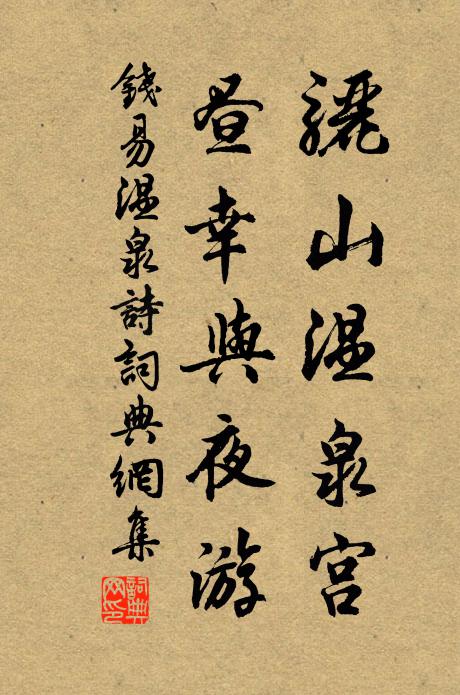 驪山温泉宮
昼幸與夜游
錢易温泉詩詞典網集
詞典網印